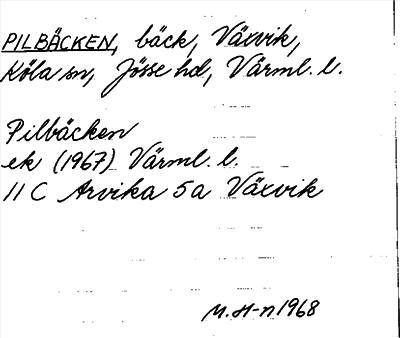 PILBÄCKEN, bäck, Växvik,
Köla sn, Jösse hd, Värml. l.
Pilbäcken
ek (1967) Värml. l.
11 C Arvika 5a Växvik
M. H-n 1968